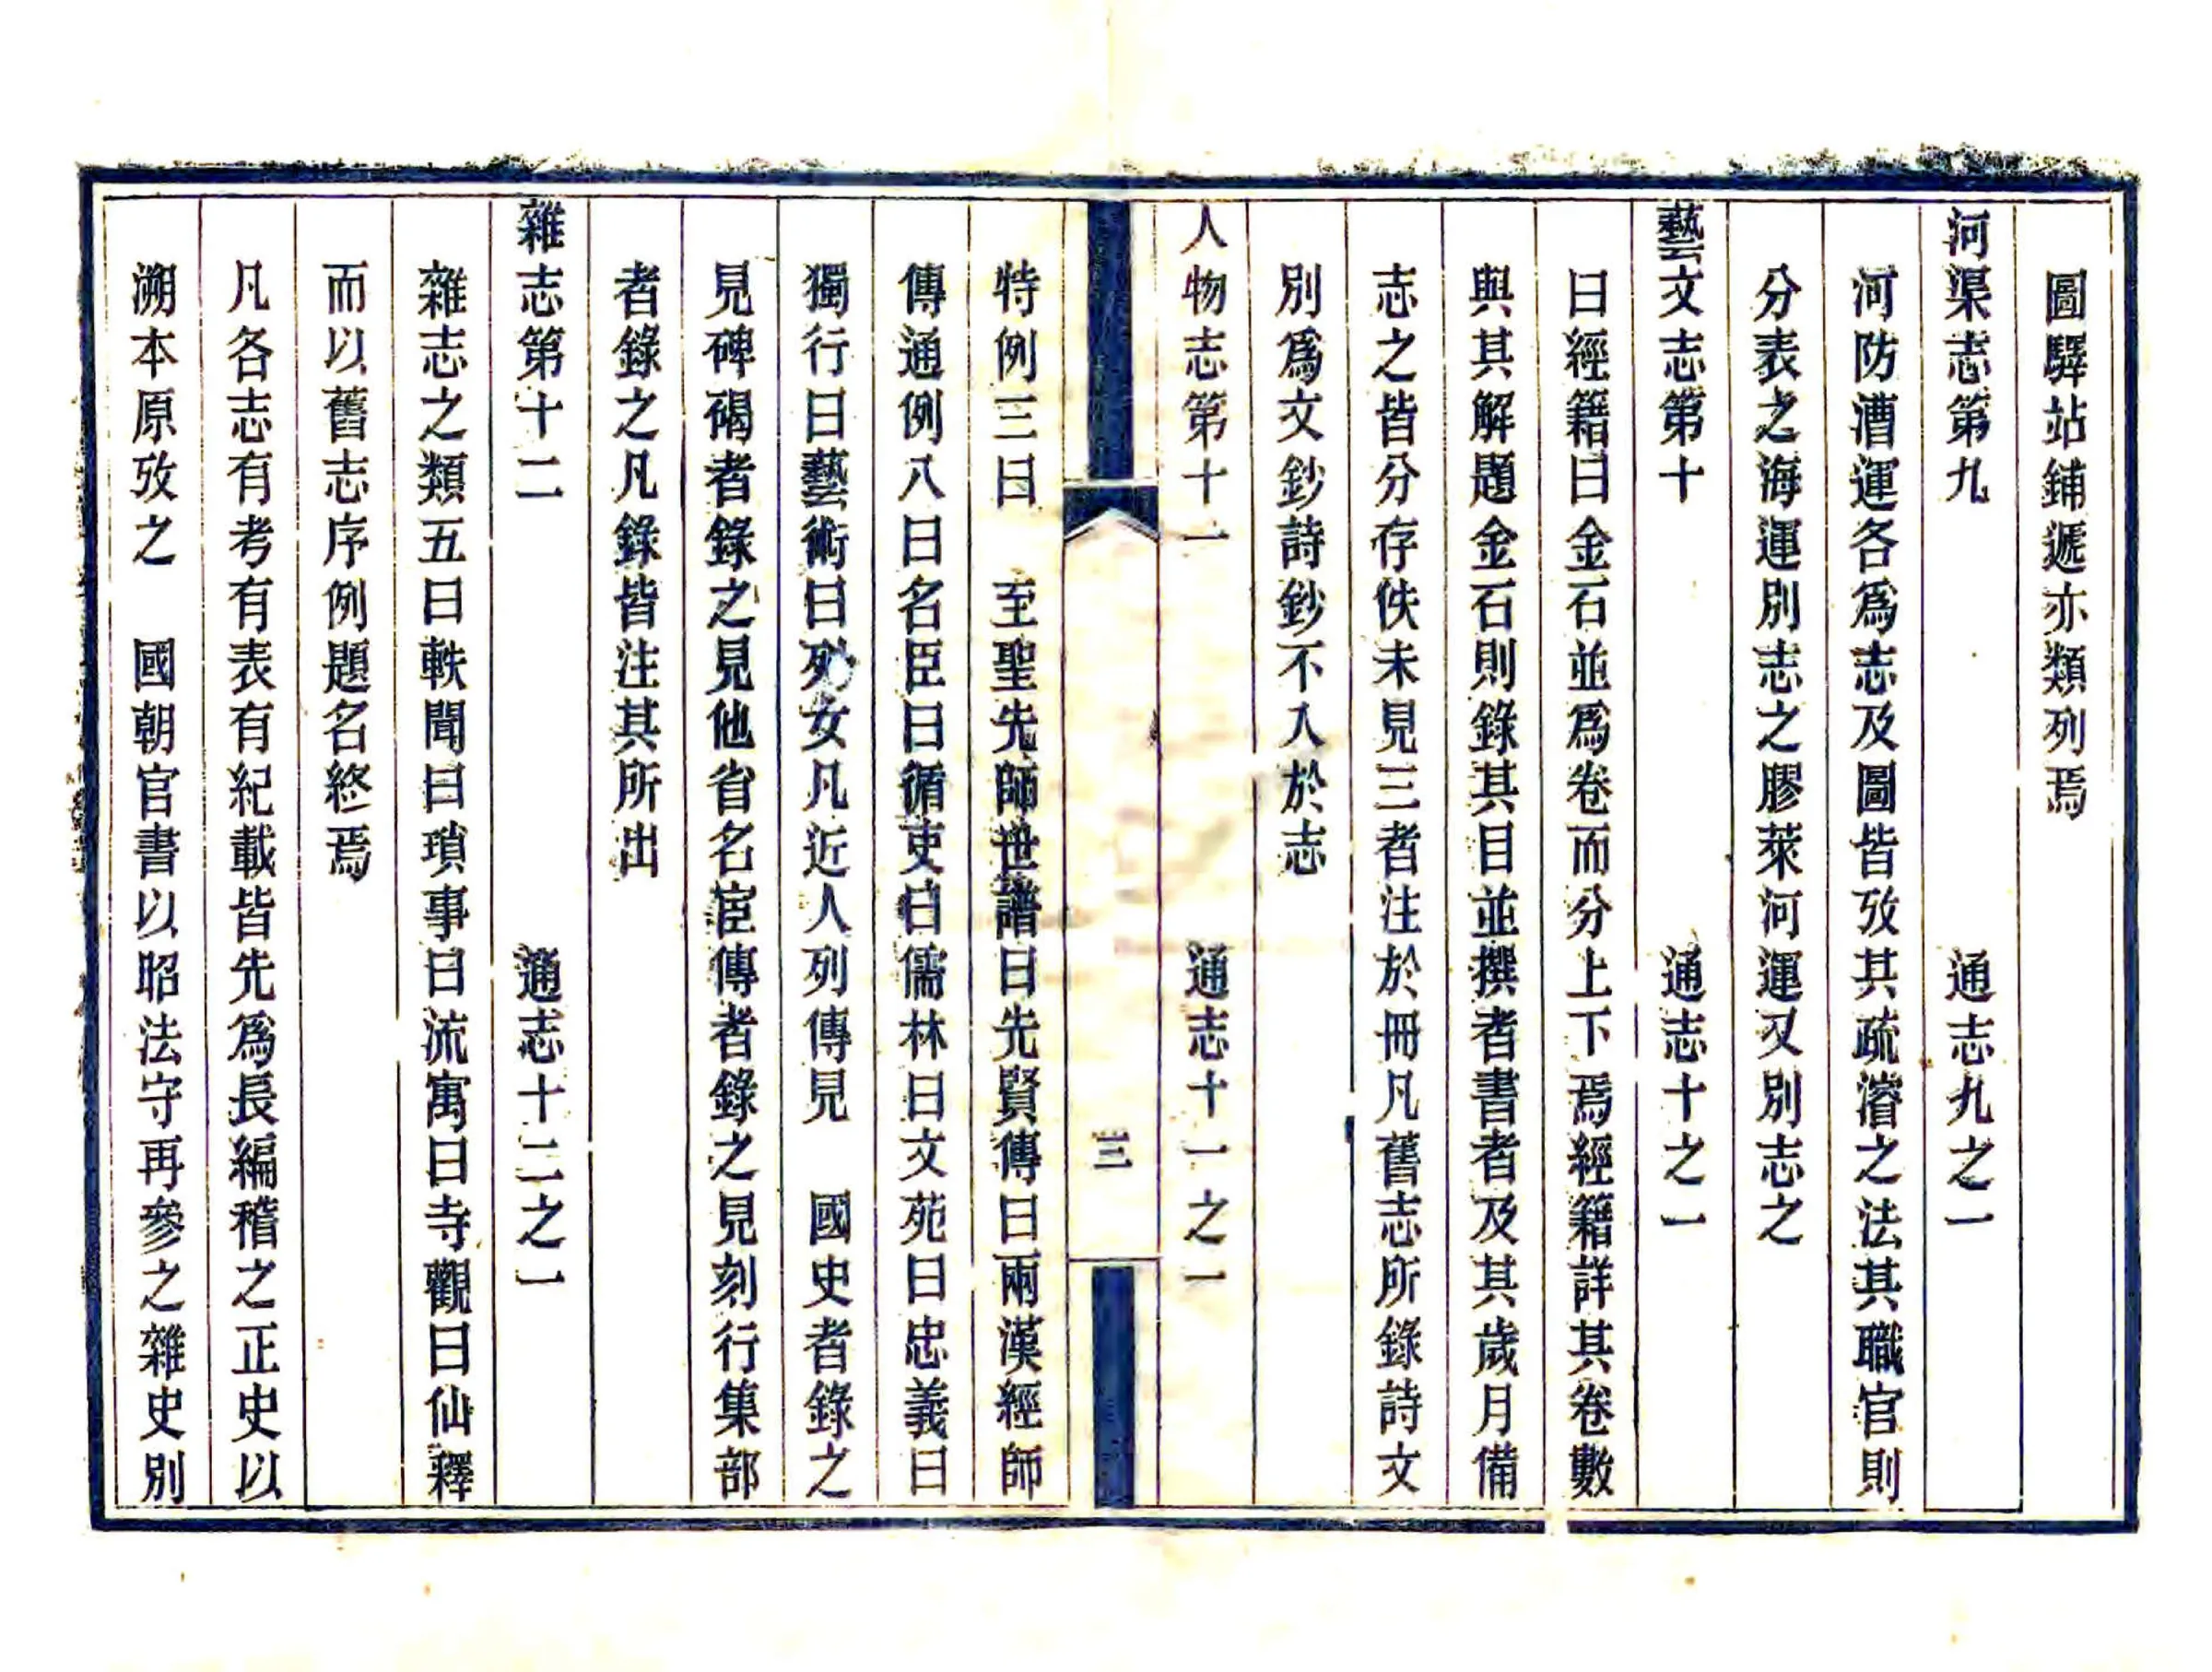 圖驛站鋪遞亦類列焉
河渠志第九　通志九之一
河防漕運各爲志及圖皆攷其疏濬之法其職官則
分表之海運別志之膠萊河運又別志之
藝文志第十　通志十之一
曰經籍曰金石並爲卷而分上下焉經籍詳其卷數
與其解題金石則錄其目並撰者書者及其歲月備
志之皆分存佚未見三者注於冊凡舊志所錄詩文
別爲文鈔詩鈔不入於志
人物志第十一　通志十一之一
三
特例三曰　至聖先師世譜曰先賢傳曰兩漢經師
傳通例八曰名臣曰循吏曰儒林曰文苑曰忠義曰
獨行曰藝術曰列女凡近人列傳見　國史者錄之
見碑碣者錄之見他省名宦傳者錄之見刻行集部
者錄之凡錄皆注其所出
雜志第十二　通志十二之一
雜志之類五曰軼聞曰瑣事曰流寓曰寺觀曰仙釋
而以舊志序例題名終焉
凡各志有考有表有紀載皆先爲長編稽之正史以
溯本原攷之　國朝官書以昭法守再參之雜史別